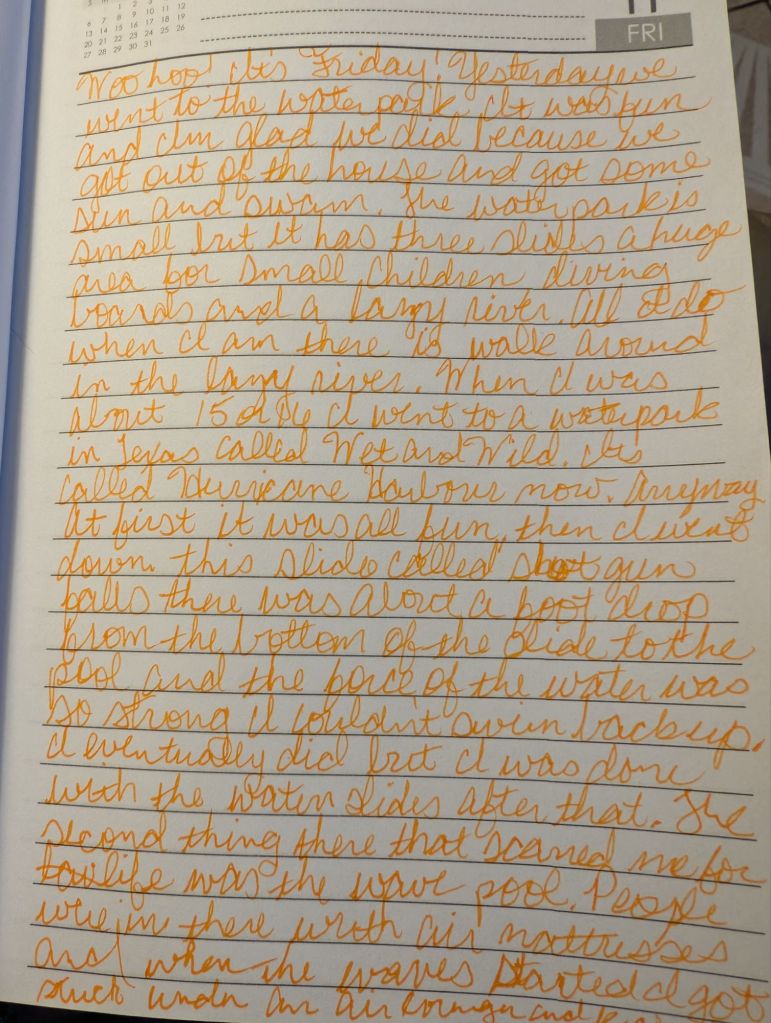 S M
1 2 3 4 5
6 7 8 9 10 11 12
13 14 15 16 17 18 19
20 21 22 23 24 25 26
27 28 29 30 31
11
FRI
Woo hoo! It's Friday! Yesterday we
went to the water park. It was fun
and I'm glad we did because we
got out of the house and got some
sun and swam. The waterpark is
small but it has three slides a huge
area for small children diving
boards and a lazy river. All I do
when I am there is walk around
in the lazy river. When I was
about 15 or I went to a waterpark
in Texas called Wet and Wild. Its
called Hurricane Harbour now. Anyway
at first it was all fun, then I went
down this slide called shot gun
falls there was about a foot drop
from the bottom of the slide to the
pool and the force of the water was
so strong I couldn't swim back up.
I eventually did but I was done
with the water slides after that. The
second thing there that scarred me for
life was the wave pool. People
were in there with air mattresses
and when the waves started I got
stuck under an air lounger and